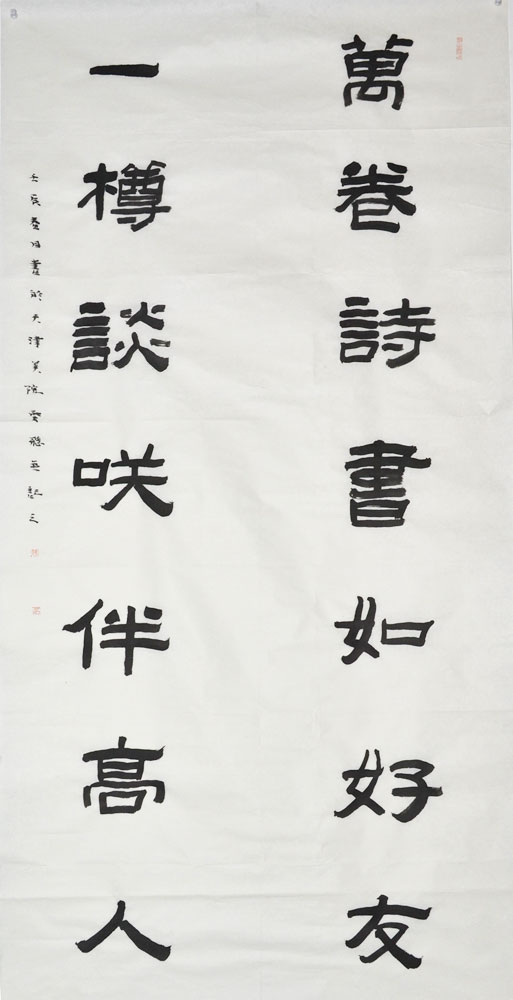 萬卷詩書如好友
一樽談咲伴高人
壬辰春月書於天津美院